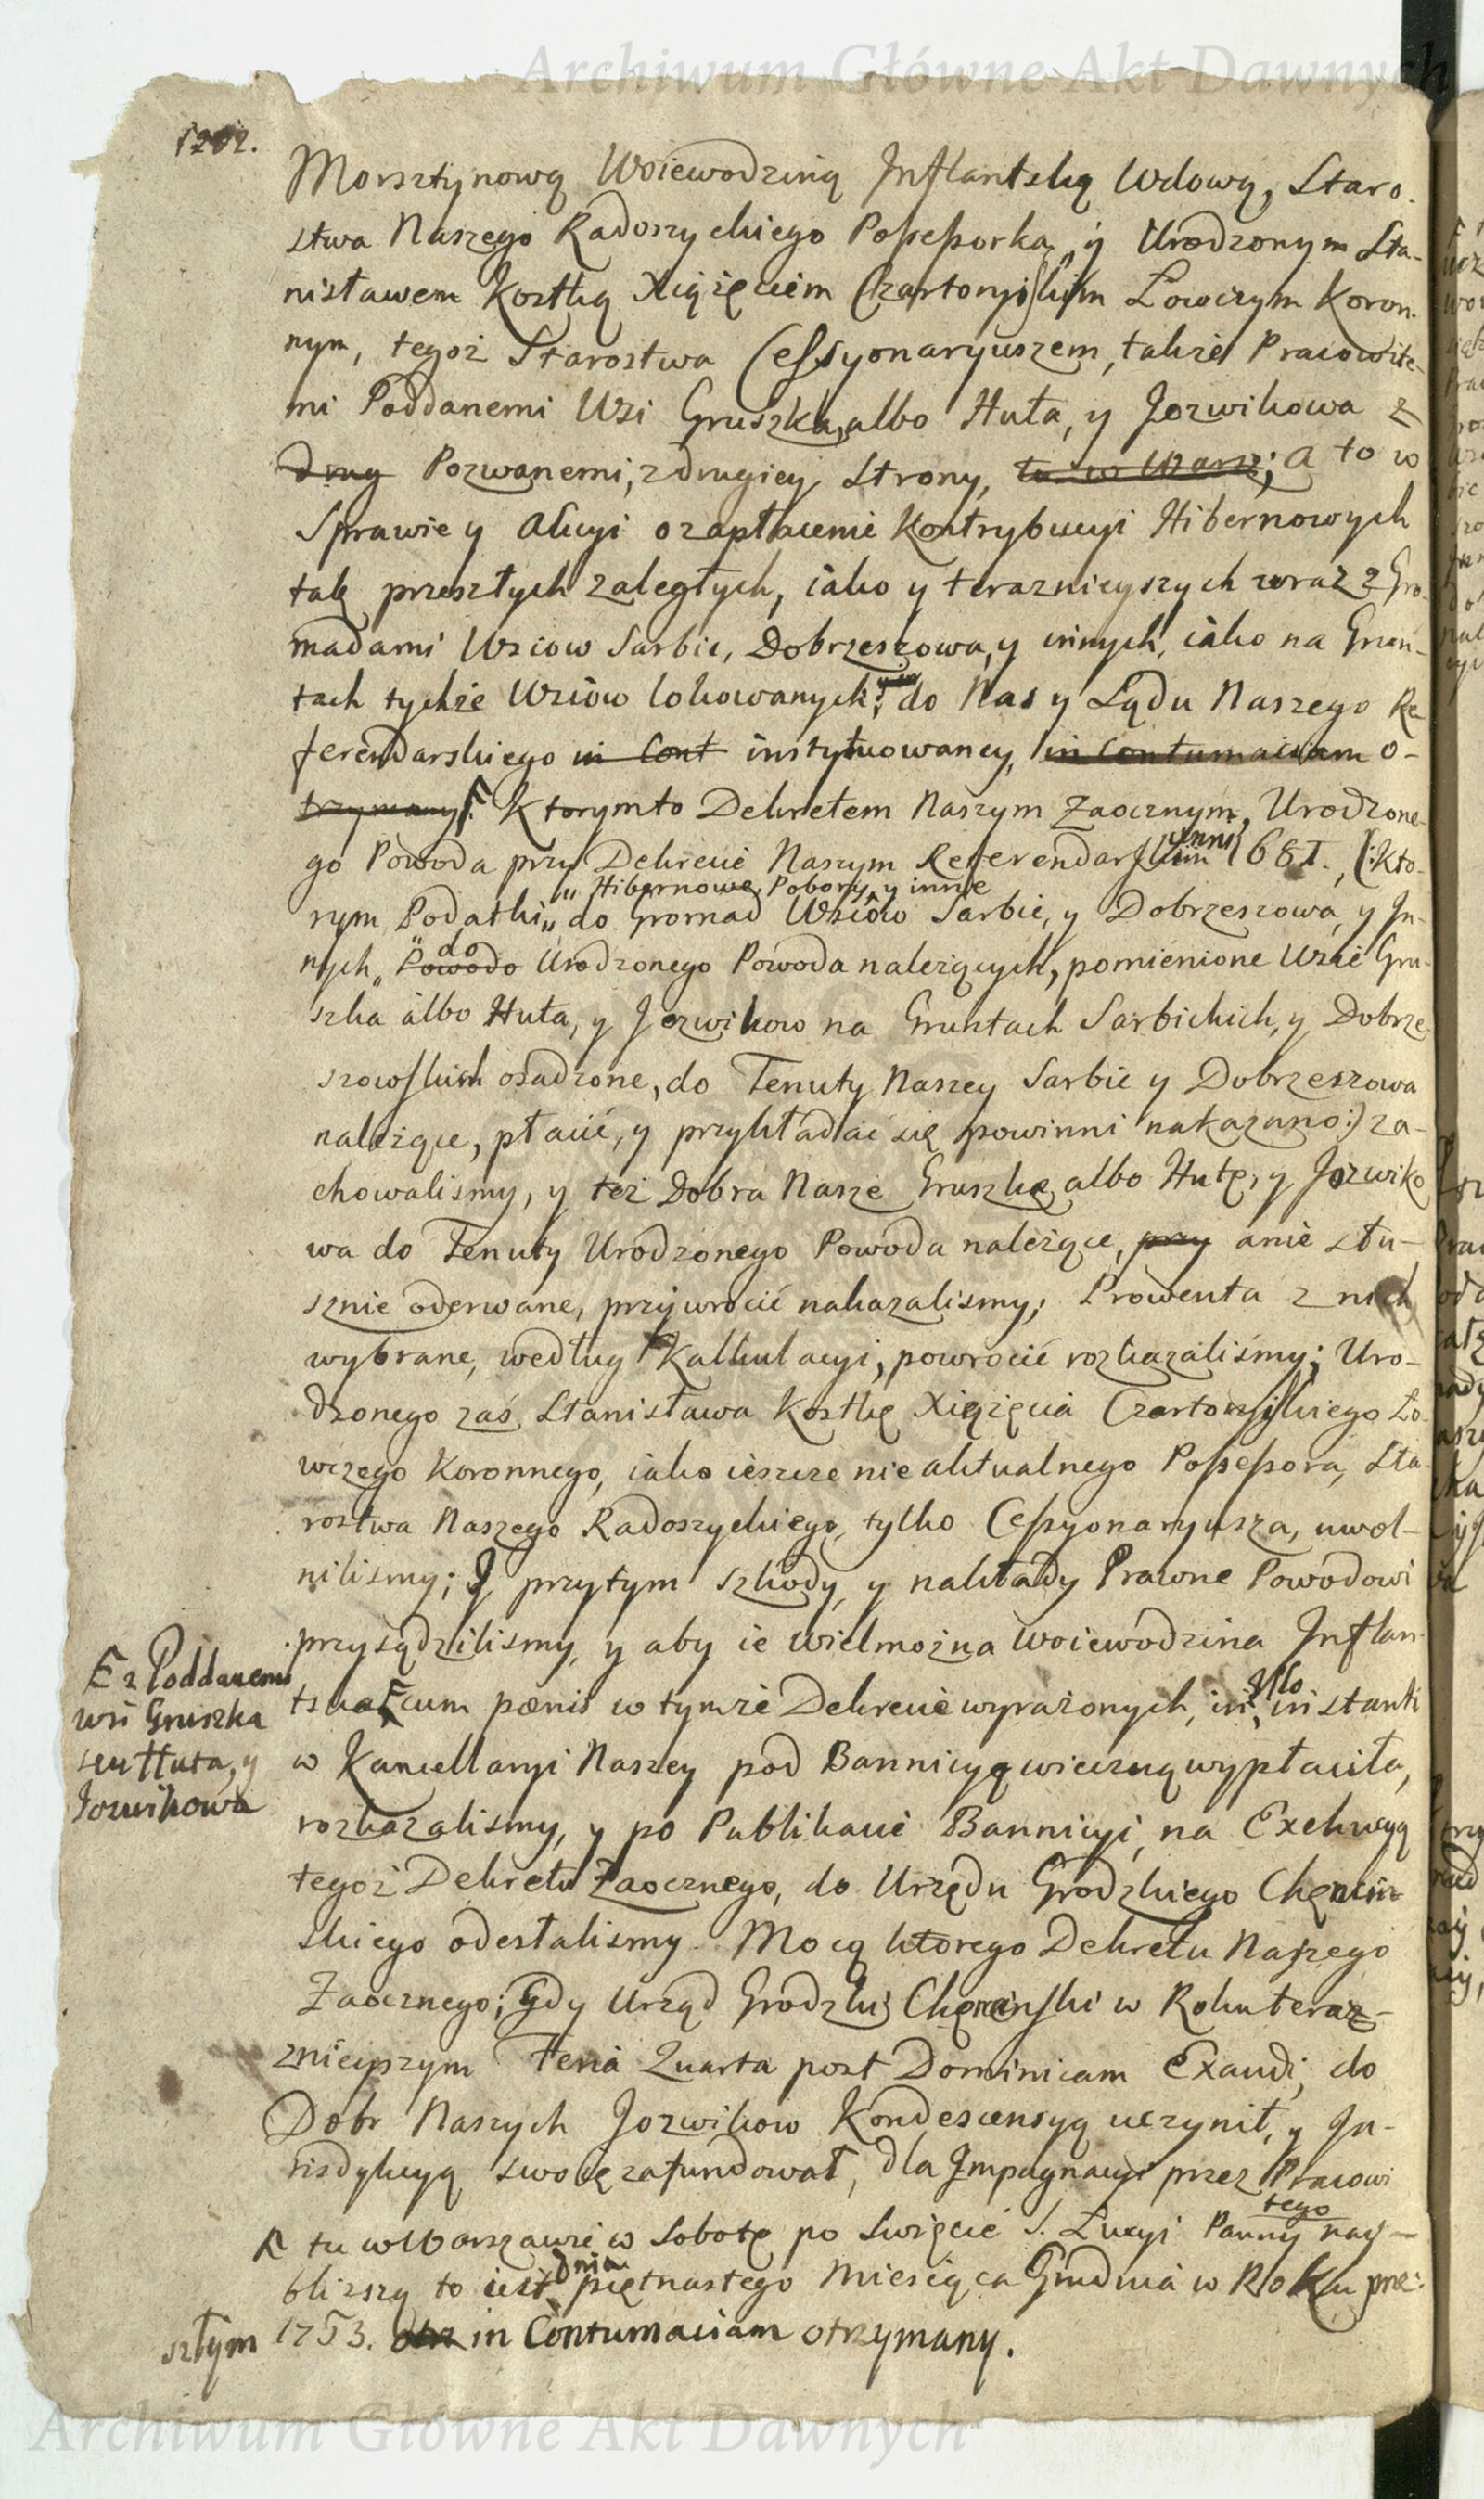 Archiwum Główne Akt Dawnych
1202.
Morsztynową Woiewodziną Inflantską Wdową, Staro-
stwa Naszego Radoszyckiego Possessorką, y Urodzonym Sta-
nisławem Kostką Xiążęciem Czartoryiskim Łowczym Koron-
nym, tegoż Starostwa Cessyonaryuszem, także Pracowite-
mi Poddanemi Wsi Gruszka, albo Huta, y Jozwikowa z
drug Pozwanemi, z drugiey Strony, to w Warsz; a to w
Sprawie y Akcyi o zapłacenie Kontrybucyi Hibernowych
tak przeszłych zaległych, iako y teraznieyszych wraz z Gro-
madami Wsiow Sarbic, Dobrzeszowa, y innych, iako na Grun-
tach tychże Wsiów lokowanych, do Nas y Sądu Naszego Re-
ferendarskiego in Cont instytuowaney, in Contumaciam o-
trzymany. Ktorymto Dekretem Naszym Zaocznym, Urodzone-
go Powoda przy Dekrecie Naszym Referendarskim 1681., (:Kto-
Hibernowe, Pobory, y innie
rym Podatki do Gromad Wsiów Sarbic, y Dobrzeszowa, y In-
do
nych Powodo Urodzonego Powoda należących, pomienione Wsie Gru-
szka albo Huta, y Jozwikow na Gruntach Sarbickich, y Dobrze-
szowskich osadzone, do Tenuty Naszey Sarbic y Dobrzeszowa
należące, płacić, y przykładać się powinni nakazano:) za-
chowalismy, y też Dobra Nasze Gruszkę albo Hutę, y Jozwiko
wa do Tenuty Urodzonego Powoda należące, przy a nie słu-
sznie oderwane, przywrocić nakazalismy; Prowenta z nich
wybrane, według Kalkulacyi, powrocić rozkazaliśmy; Uro-
dzonego zaś Stanisława Kostkę Xiążęcia Czartoryiskiego Ło-
wczego Koronnego, iako ieszcze nie aktualnego Possessora, Sta-
rostwa Naszego Radoszyckiego, tylko Cessyonaryusza, uwol-
nilismy; I przytym szkody, y nakłady Prawne Powodowi
przysądzilismy, y aby ie Wielmożna Woiewodzina Inflan-
tska cum pœnis w tymże Dekrecie wyrażonych, in instanti
w Kancellaryi Naszey pod Bannicyą wieczną wypłaciła,
rozkazalismy, y po Publikacie Bannicyi, na Exekucyą
tegoż Dekretu Zaocznego, do Urzędu Grodzkiego Chęncin-
skiego odesłalismy. Mocą ktorego Dekretu Naszego
Zaocznego; Gdy Urząd Grodzki Chęncinski w Roku teraz-
znieyszym Feria Quarta post Dominicam Exaudi, do
Dobr Naszych Jozwikow Kondescensyą uczynił, y Ju-
risdykcyą swoię zafundował, dla Impugnacyi przez Pracowi
tego
tu w Warszawie w Sobotę po Swięcie S. Lucyi Panny nay-
dnia
bliższą to iest piętnastego Miesiąca Grudnia w Roku prze-
szłym 1753. otrz in Contumaciam otrzymany.
z Poddanemi
wsi Gruszka
seu Huta, y
Jozwikowa
Archiwum Główne Akt Dawnych